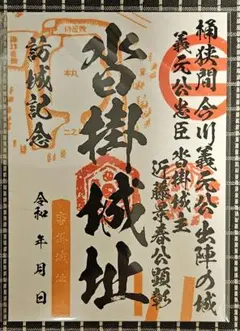 桶狭間今川義元公出陣の城
義元公忠臣 沓掛城主
近藤景春公顕彰
沓掛城址
訪城記念
令和 年 月 日